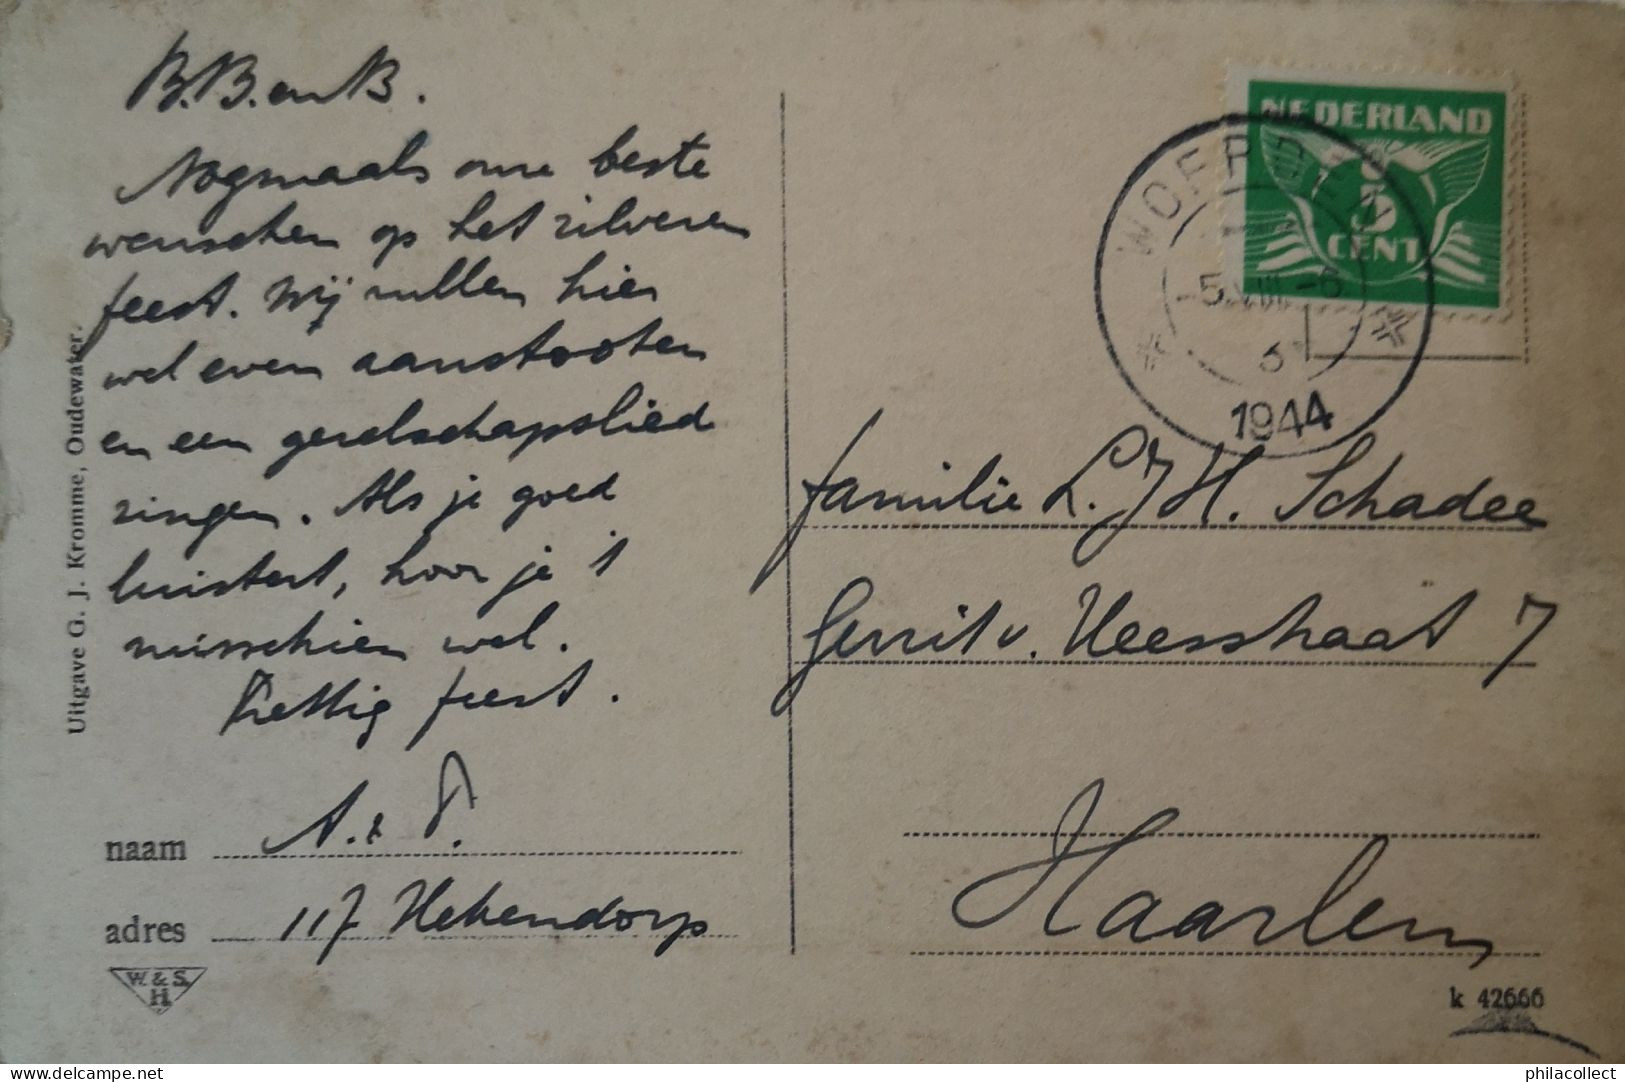 B.B. en B.
Nogmaals onze beste
wenschen op het zilveren
feest. Wij zullen hier
wel even aanstooten
en een gezelschapslied
zingen. Als je goed
luistert, hoor je 't
misschien wel.
Prettig feest.
naam A. & P.
adres 117 Hekendorp
W. & S.
H.
Uitgave G. J. Kromme, Oudewater.
NEDERLAND
5
CENT
WOERDEN
1944
familie L. J. H. Schadee
Gerrit v. Heesstraat 7
Haarlem
k 42666
http://www.delcampe.net
philacollect